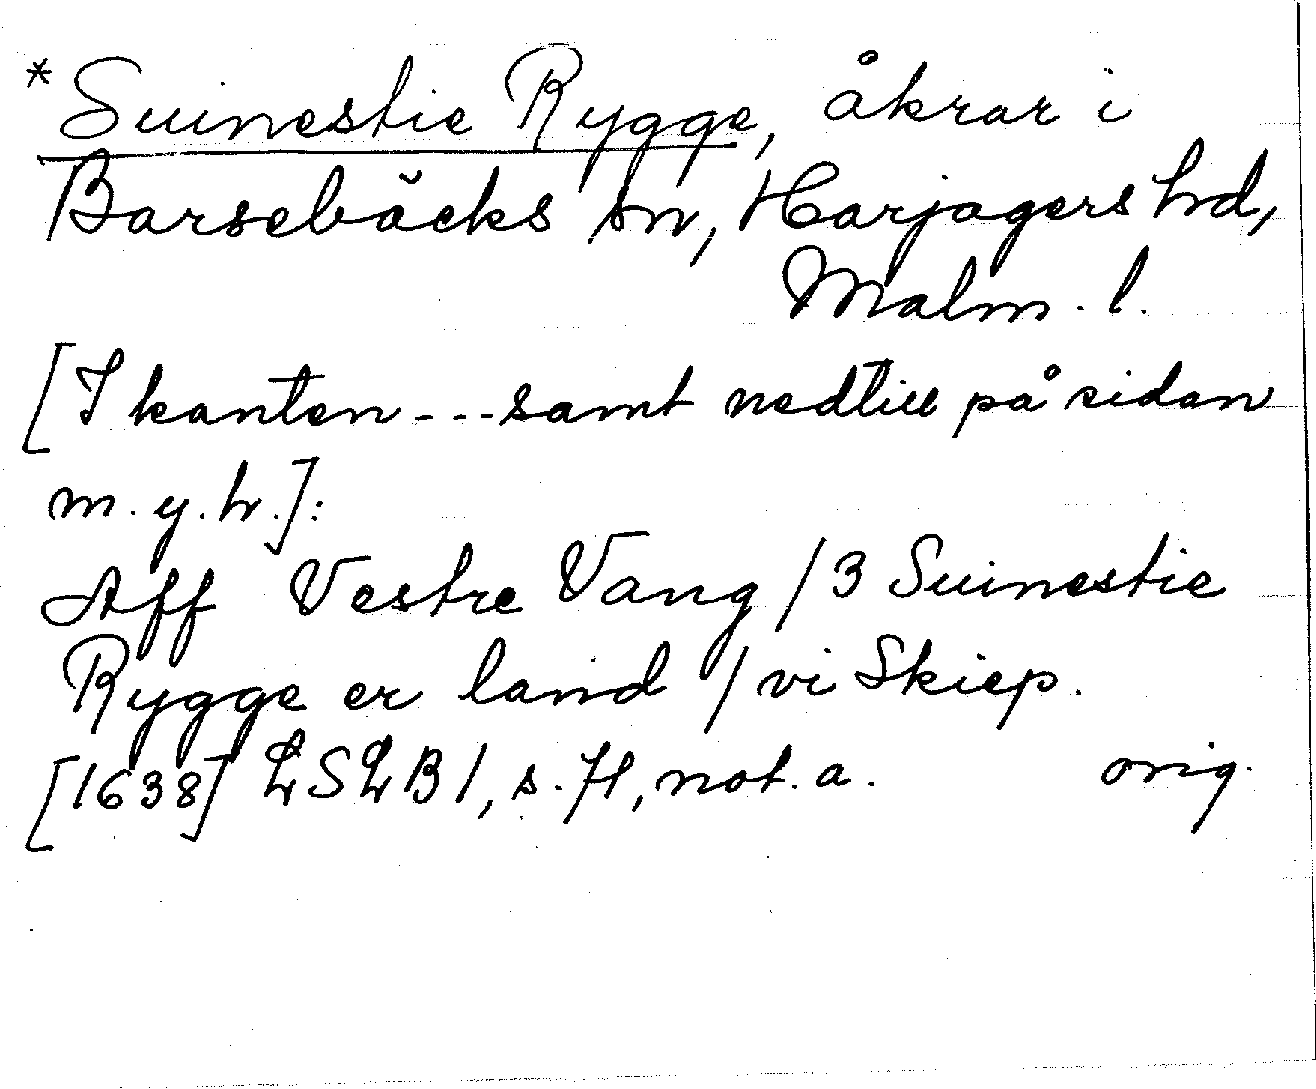 *Suinestie Rygge, åkrar i
Barsebäcks sn, Harjagers hd,
Malm. l.
[I kanten - - - samt nedtill på sidan
m. y. h.]:
Aff Vestre Vang / 3 Suinestie
Rygge er land / vi Skiep.
[1638] LSLB 1, s. 71, not. a. orig.